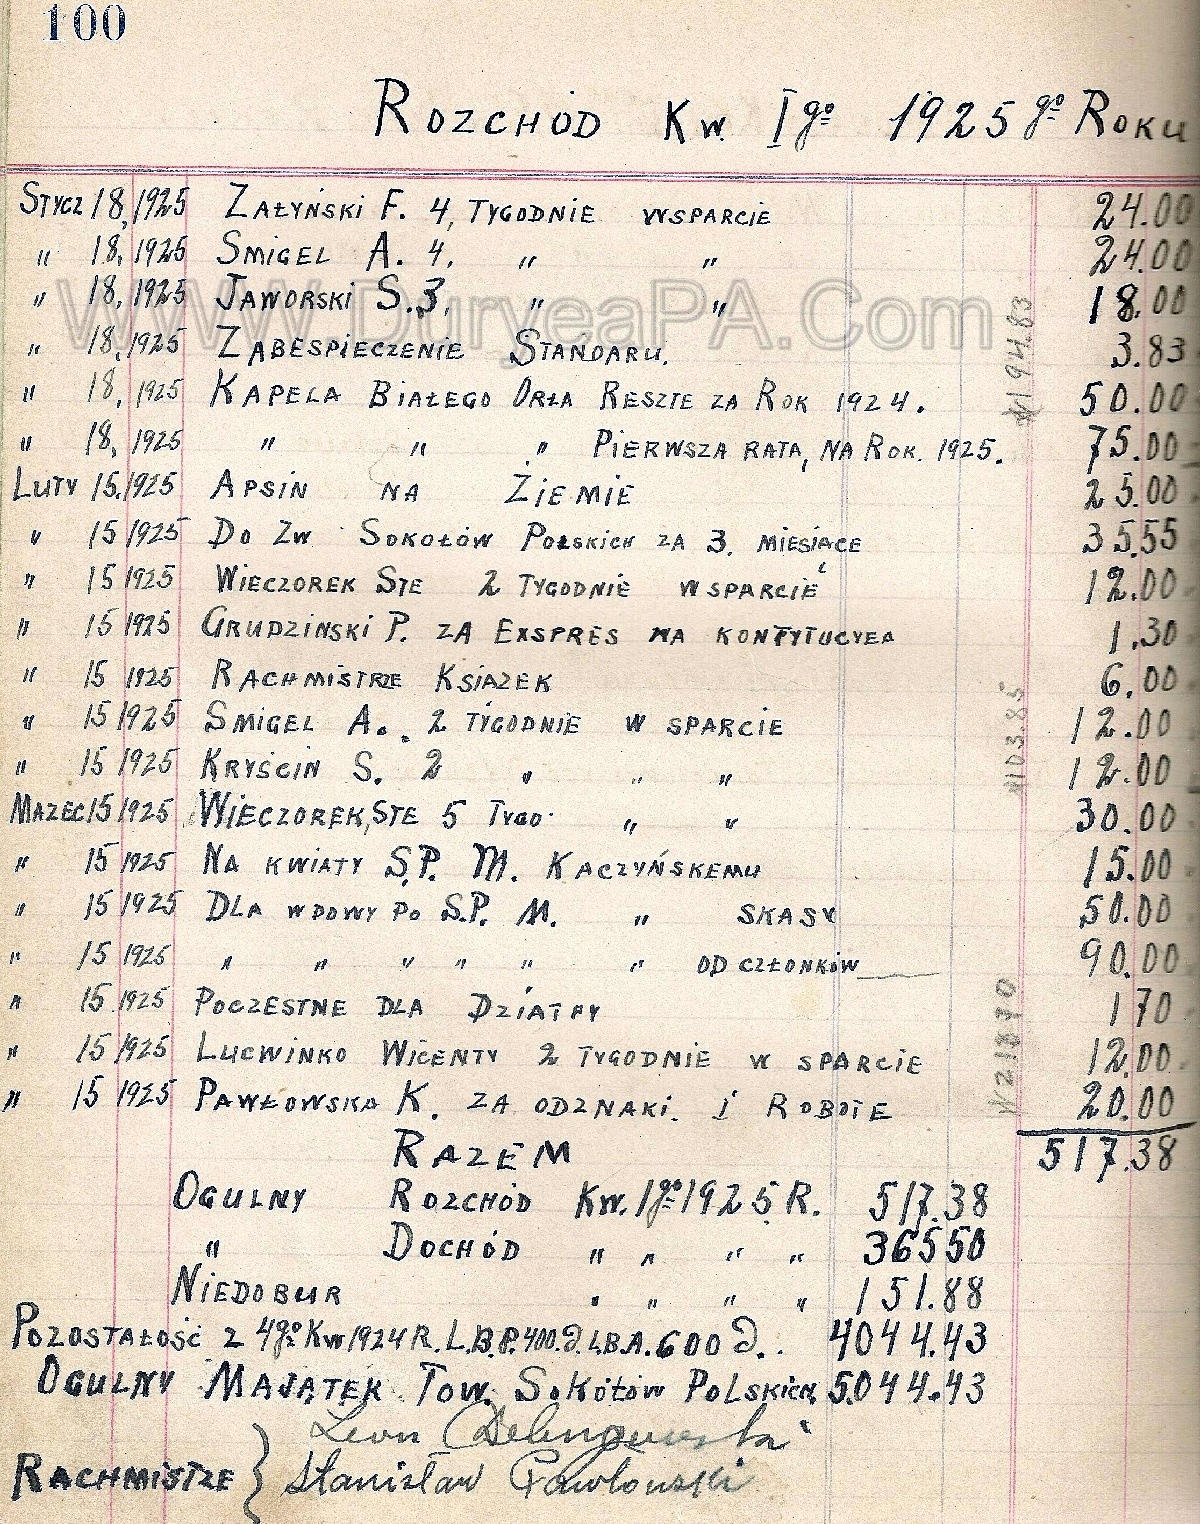 100
ROZCHÓD KW. I go 1925 go ROKU
STYCZ 18, 1925 ZAŁYŃSKI F. 4, TYGODNIE WSPARCIE 24.00
" 18, 1925 SMIGEL A. 4, " " 24.00
" 18, 1925 JAWORSKI S. 3, " " 18.00
" 18, 1925 ZABESPIECZENIE STANDARU. 3.83
" 18, 1925 KAPELA BIAŁEGO ORŁA RESZTE ZA ROK 1924. 50.00
" 18, 1925 " " " PIERWSZA RATA, NA ROK. 1925. 75.00
194.83
LUTY 15. 1925 APSIN NA ŻIEMIE 25.00
" 15 1925 DO ZW SOKOŁÓW POLSKICH ZA 3. MIESIĄCE 35.55
" 15 1925 WIECZOREK STE 2 TYGODNIE WSPARCIE 12.00
" 15 1925 GRUDZINSKI P. ZA EXSPRES NA KONTYTUCYEA 1.30
" 15 1925 RACHMISTRZE KSIAZEK 6.00
" 15 1925 SMIGEL A. 2 TYGODNIE W SPARCIE 12.00
" 15 1925 KRYŚCIN S. 2 " " " 12.00
103.85
MAZEC 15 1925 WIECZOREK, STE 5 TYGO. " " 30.00
" 15 1925 NA KWIATY Ś.P. M. KACZYŃSKEMU 15.00
" 15 1925 DLA WDOWY PO S.P. M. " SKASY 50.00
" 15 1925 " " " " " " OD CZŁONKÓW 90.00
" 15 1925 POCZESTNE DLA DZIATFY 170
" 15 1925 LUCWINKO WICENTY 2 TYGODNIE W SPARCIE 12.00
" 15 1925 PAWŁOWSKA K. ZA ODZNAKI. I ROBOTE 20.00
218.70
RAZEM 517.38
OGULNY ROZCHÓD KW. 1go 1925 R. 517.38
" DOCHÓD " " " " 365 50
NIEDOBUR " " " " 151.88
POZOSTAŁOŚĆ Z 4go KW 1924 R. L.B.P. 400.D. L.B.A. 600 D.. 4044.43
OGULNY MAJĄTEK TOW. SOKÓŁÓW POLSKICH. 5044.43
Leon
RACHMISTZE } Stanisław Pawlowski
WWW.DuryeaPA.Com